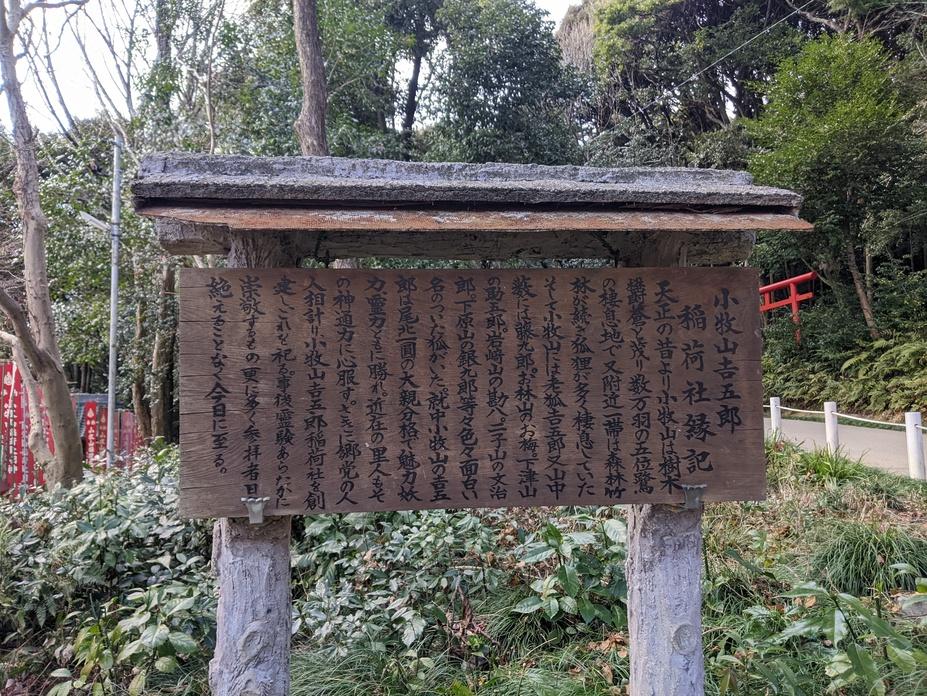 小牧山吉五郎
稲荷社縁記
天正の昔より小牧山は樹木
鬱蒼と茂り数万羽の五位鷺
の棲息地で又附近一帯は森林竹
林が続き狐狸が多く棲息していた
そして小牧山には老狐吉五郎又山中
薮には藤九郎。お林山のお梅。下津山
の勘五郎岩崎山の勘八二子山の文治
郎下原山の銀九郎等々色々面白い
名のついた狐がいた。就中小牧山の吉五
郎は尾北一圓の大親分格で魅力妖
力霊力ともに勝れ。近在の里人もそ
の神通力に心服す。さきに郷党の人
人相計り小牧山吉五郎稲荷社を創
建しこれを祀る事後霊験あらたかに
崇敬するもの更に多く参拝者日に
絶えることなく今日に至る。